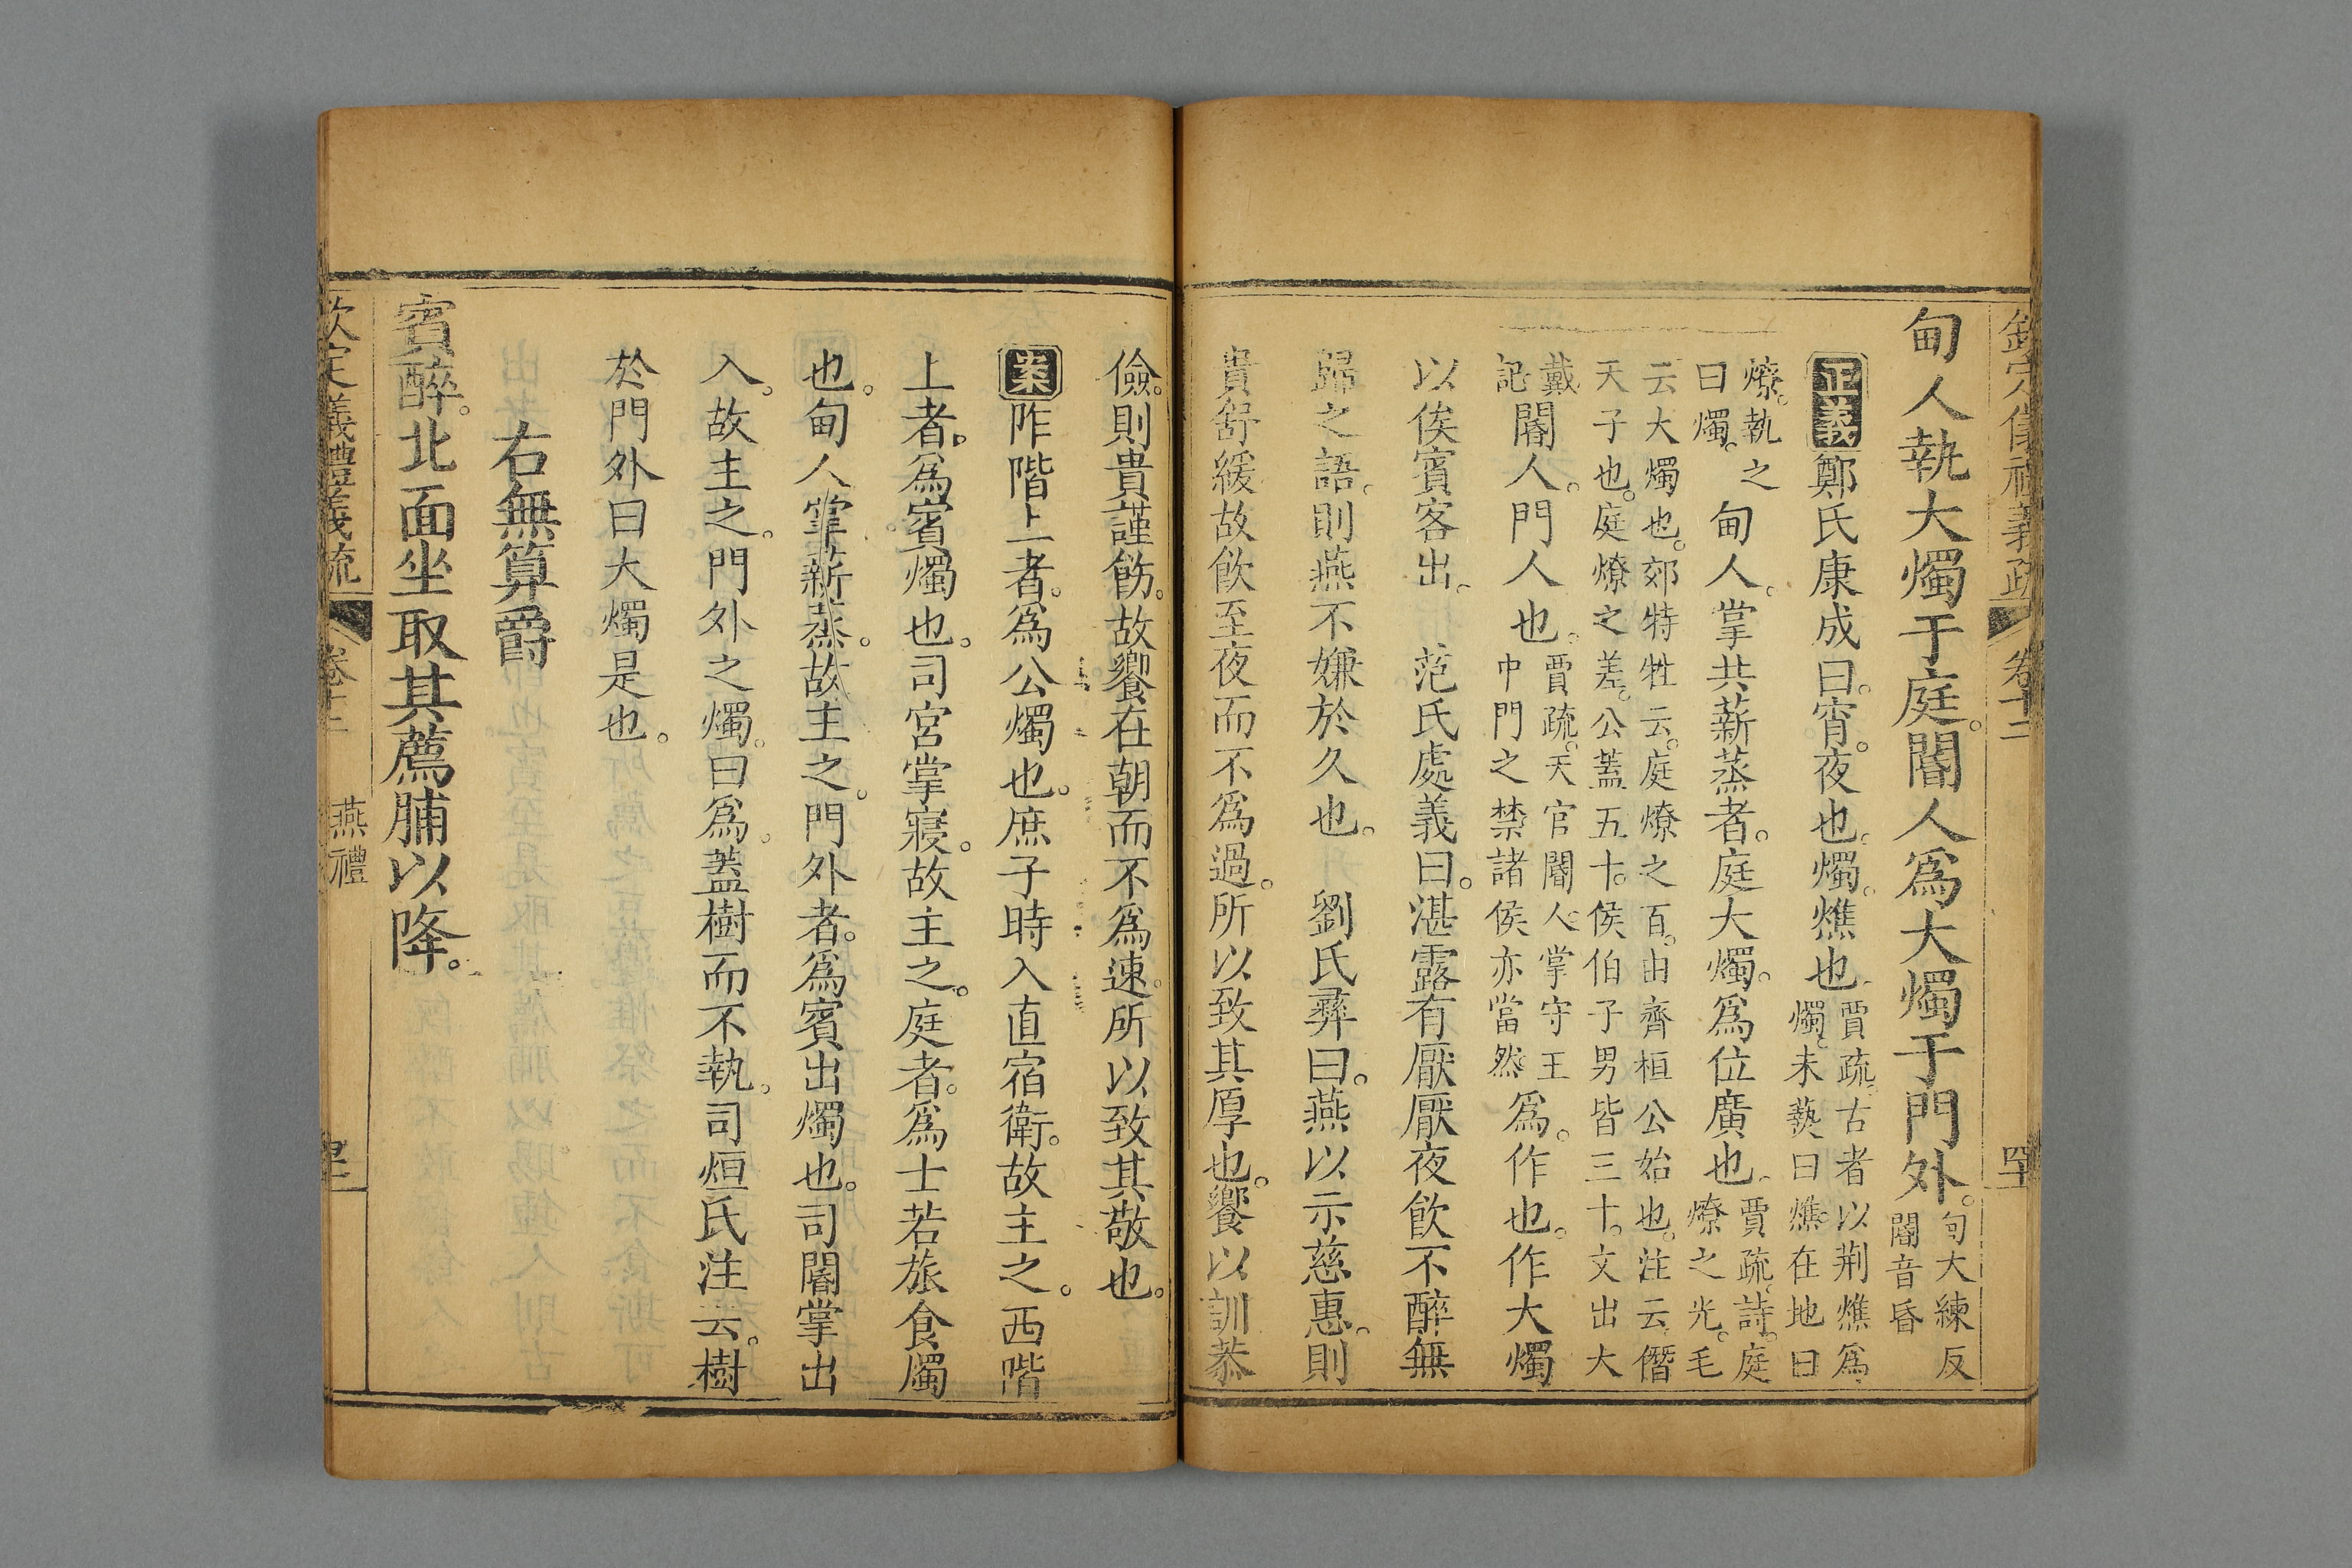 欽定儀禮義疏 卷十二 四十
甸人執大燭于庭。閽人爲大燭于門外。甸大練反 閽音昏
正義鄭氏康成曰。宵。夜也。燭。燋也。賈疏。古者以荆燋爲燭。未爇曰燋。在地曰
燎。執之曰燭。甸人。掌共薪蒸者。庭大燭。爲位廣也。賈疏。詩。庭燎之光。毛
云大燭也。郊特牲云。庭燎之百。由齊桓公始也。注云。僭
天子也。庭燎之差。公蓋五十。侯伯子男皆三十。文出大
戴記閽人。門人也。賈疏。天官閽人。掌守王中門之禁諸侯亦當然爲。作也。作大燭
以俟賓客出。 范氏處義曰。湛露有厭厭夜飮不醉無
歸之語。則燕不嫌於久也。 劉氏彝曰。燕以示慈惠。則
貴舒緩故飮至夜而不爲過。所以致其厚也。饗以訓恭
儉。則貴謹飭。故饗在朝而不爲速。所以致其敬也。
案阼階上者。爲公燭也。庶子時入直宿衛。故主之。西階
上者。爲賓燭也。司宮掌寢。故主之。庭者。爲士若旅食燭
也。甸人掌薪蒸。故主之。門外者。爲賓出燭也。司閽掌出
入。故主之。門外之燭。曰爲。蓋樹而不執。司烜氏注云。樹
於門外曰大燭是也。
右無算爵
賓醉。北面坐取其薦脯以降。
欽定儀禮義疏 卷十二 燕禮